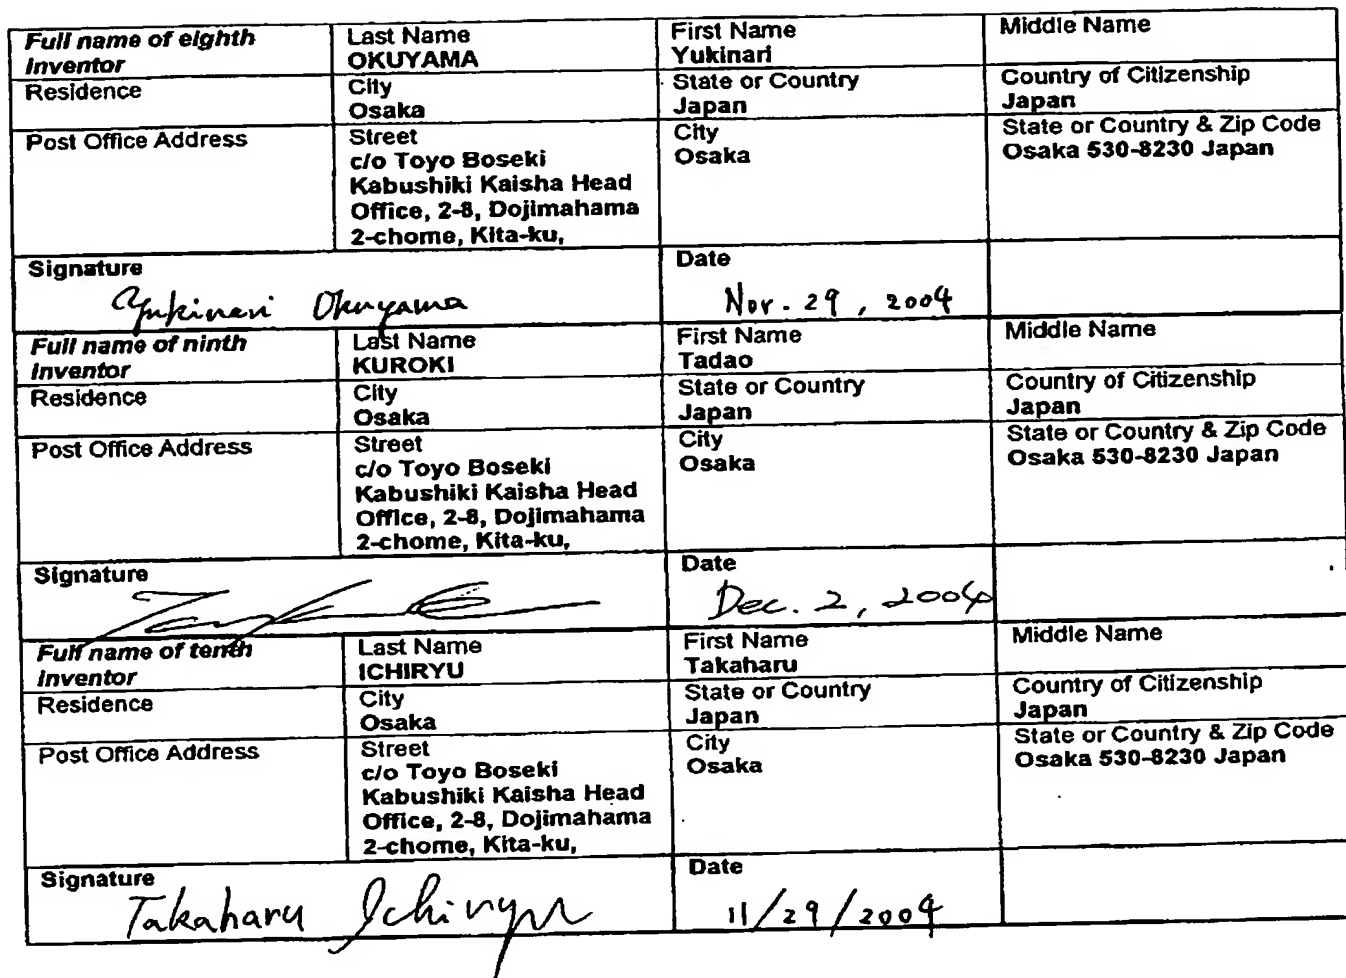 Full name of eighth Inventor
Last Name
OKUYAMA
First Name
Yukinari
Middle Name
Residence
City
Osaka
State or Country
Japan
Country of Citizenship
Japan
Post Office Address
Street
c/o Toyo Boseki
Kabushiki Kaisha Head
Office, 2-8, Dojimahama
2-chome, Kita-ku,
City
Osaka
State or Country & Zip Code
Osaka 530-8230 Japan
Signature
Yukinari Okuyama
Date
Nov. 29, 2004
Full name of ninth
Inventor
Last Name
KUROKI
First Name
Tadao
Middle Name
Residence
City
Osaka
State or Country
Japan
Country of Citizenship
Japan
Post Office Address
Street
c/o Toyo Boseki
Kabushiki Kaisha Head
Office, 2-8, Dojimahama
2-chome, Kita-ku,
City
Osaka
State or Country & Zip Code
Osaka 530-8230 Japan
Signature
Date
Dec. 2, 2004
Full name of tenth
Inventor
Last Name
ICHIRYU
First Name
Takaharu
Middle Name
Residence
City
Osaka
State or Country
Japan
Country of Citizenship
Japan
Post Office Address
Street
c/o Toyo Boseki
Kabushiki Kaisha Head
Office, 2-8, Dojimahama
2-chome, Kita-ku,
City
Osaka
State or Country & Zip Code
Osaka 530-8230 Japan
Signature
Takaharu Ichiryu
Date
11/29/2004